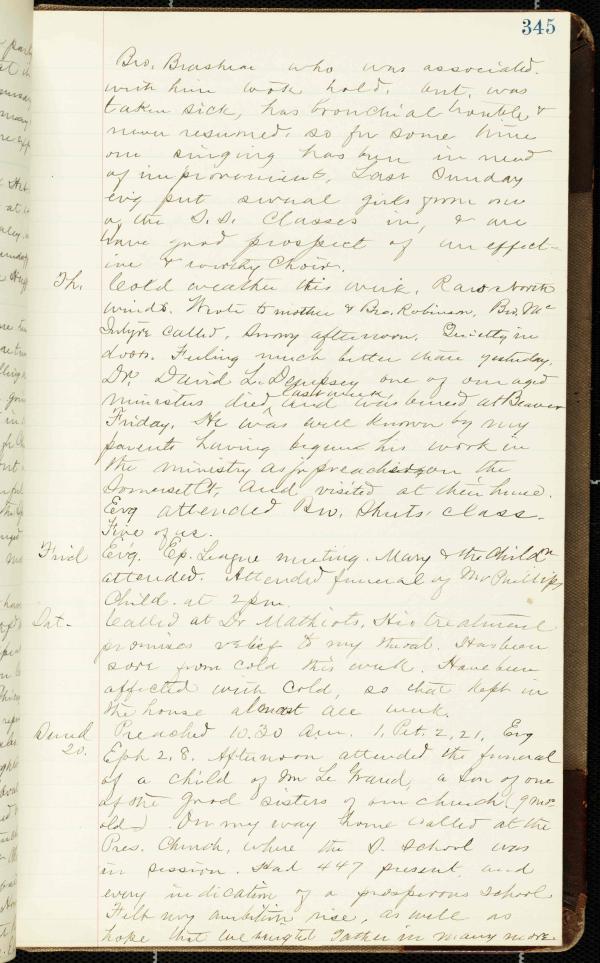 345
Bro. Brashear who was associated
with him took hold, but was
taken sick, has bronchial trouble &
never resumed, so for some time
our singing has been in need
of improvement. Last Sunday
evg put several girls from one
of the S.S. Classes in, & are
have good prospect of an effect-
ive & worthy Choir.
Th. Cold weather this week. Raw North
winds. Wrote to mother & Bro. Robinson. Bro. Mc
Intyre called. Snowy afternoon. Quietly in
doors. Feeling much better than yesterday.
Dr. David L. Dempsey one of our aged
ministers died last week and was buried at Beaver
Friday. He was well known by my
parents having begun his work in
the ministry as jr preacher on the
Somerset Ct, and visited at their home.
Evg attended Bro. Shuts class.
Five of us.
Frid Evg. Ep. League meeting. Mary & the Childn
attended. Attended funeral of Mr Phillips
Child at 2 pm.
Sat- Called at Dr Mathiots, His treatment
promises relief to my throat. Has been
sore from cold this week. Have been
affected with cold, so that kept in
the house almost all week.
Sund 20. Preached 10.30 am. 1. Pet. 2, 21, Evg
Eph 2, 8. Afternoon attended the funeral
of a child of Wm Le Grand, a son of one
of the good sisters of our church (9 mos
old). On my way home called at the
Pres. Church, where the S. School was
in session. Had 447 present, and
every indication of a prosperous School
Felt my ambition rise, as well as
hope that we might gather in many more